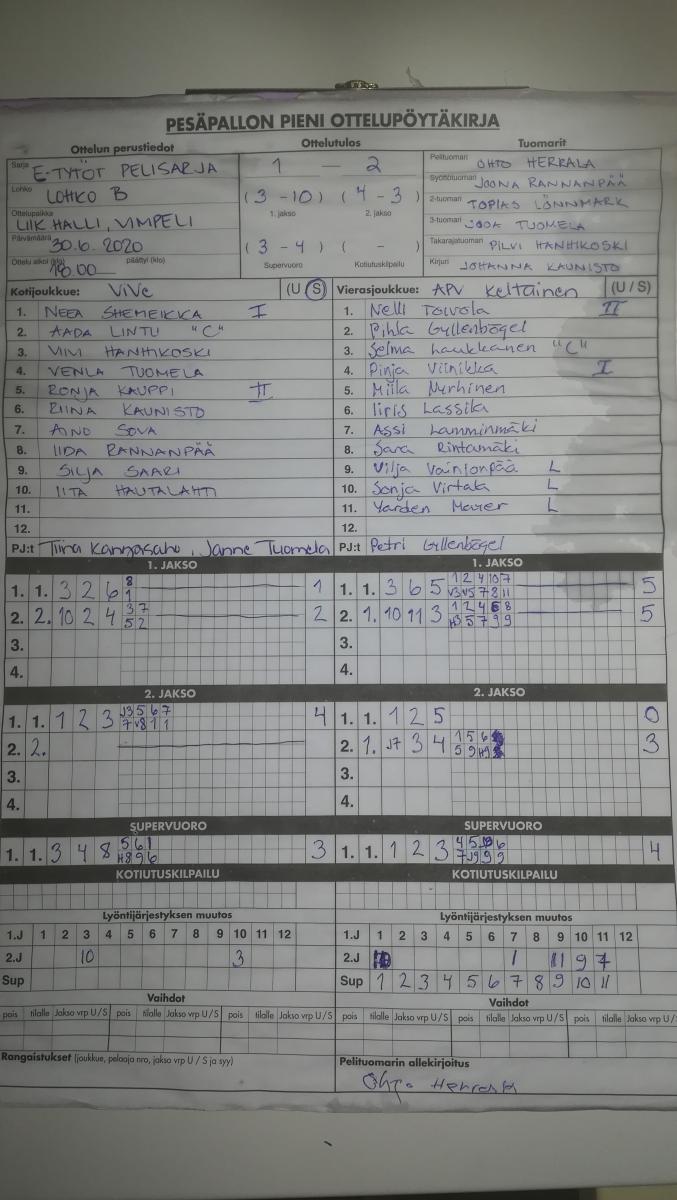 PESÄPALLON PIENI OTTELUPÖYTÄKIRJA
Ottelun perustiedot
Sarja E-TYTÖT PELISARJA
Lohko LOHKO B
Ottelupaikka LIIK.HALLI, VIMPELI
Päivämäärä 30.6.2020
Ottelu alkoi (klo) 18.00 päättyi (klo)
Ottelutulos
1 — 2
(3 - 10) (4 - 3)
1. jakso 2. jakso
(3 - 4) ( - )
Supervuoro Kotiutuskilpailu
Tuomarit
Pelituomari OHTO HERRALA
Syöttötuomari JOONA RANNANPÄÄ
2-tuomari TOPIAS LÖNNMARK
3-tuomari JOOA TUOMELA
Takarajatuomari PILVI HANHIKOSKI
Kirjuri JOHANNA KAUNISTO
Kotijoukkue: ViVe (U/S)
1. NEEA SHEMEIKKA I
2. AADA LINTU "C"
3. VIVI HANHIKOSKI
4. VENLA TUOMELA
5. RONJA KAUPPI II
6. RIINA KAUNISTO
7. AINO SOVA
8. IIDA RANNANPÄÄ
9. SILJA SAARI
10. IITA HAUTALAHTI
11.
12.
PJ:t Tiina Kangasaho, Janne Tuomela
Vierasjoukkue: APV Keltainen (U/S)
1. Nelli Toivola II
2. Pihla Gyllenbögel
3. Selma Laukkanen "C"
4. Pinja Viinikka I
5. Miila Nyrhinen
6. Iiris Lassila
7. Assi Lamminmäki
8. Sara Rintamäki
9. Vilja Vainionpää L
10. Sonja Virtala L
11. Yarden Mayer L
12.
PJ:t Petri Gyllenbögel
1. JAKSO
1. 1. 3 2 6 8 1
1
2. 2. 10 2 4 3 7 2
5 2
3.
4.
1. JAKSO
1. 1. 3 6 5 1 2 4 10 7 5
v3 v5 7 8 11
2. 1. 10 11 3 1 2 4 6 8 5
H3 5 7 9 9
3.
4.
2. JAKSO
1. 1. 1 2 3 J3 5 6 7 4
7 v8 1 1
2. 2.
3.
4.
2. JAKSO
1. 1. 1 2 5 0
2. 1. J7 3 4 1 5 6 3
5 9 H9
3.
4.
SUPERVUORO
1. 1. 3 4 8 5 6 1 3
H8 9 6
SUPERVUORO
1. 1. 1 2 3 4 5 6 4
7 J9 9 9
KOTIUTUSKILPAILU
KOTIUTUSKILPAILU
Lyöntijärjestyksen muutos
1.J 1 2 3 4 5 6 7 8 9 10 11 12
2.J 10 3
Sup
Lyöntijärjestyksen muutos
1.J 1 2 3 4 5 6 7 8 9 10 11 12
2.J 1 11 9 7
Sup 1 2 3 4 5 6 7 8 9 10 11
Vaihdot
pois tilalle Jakso vrp U/S pois tilalle Jakso vrp U/S pois tilalle Jakso vrp U/S
Vaihdot
pois tilalle Jakso vrp U/S pois tilalle Jakso vrp U/S pois tilalle Jakso vrp U/S
Rangaistukset (joukkue, pelaaja nro, jakso vrp U / S ja syy)
Pelituomarin allekirjoitus
Ohto Herrala